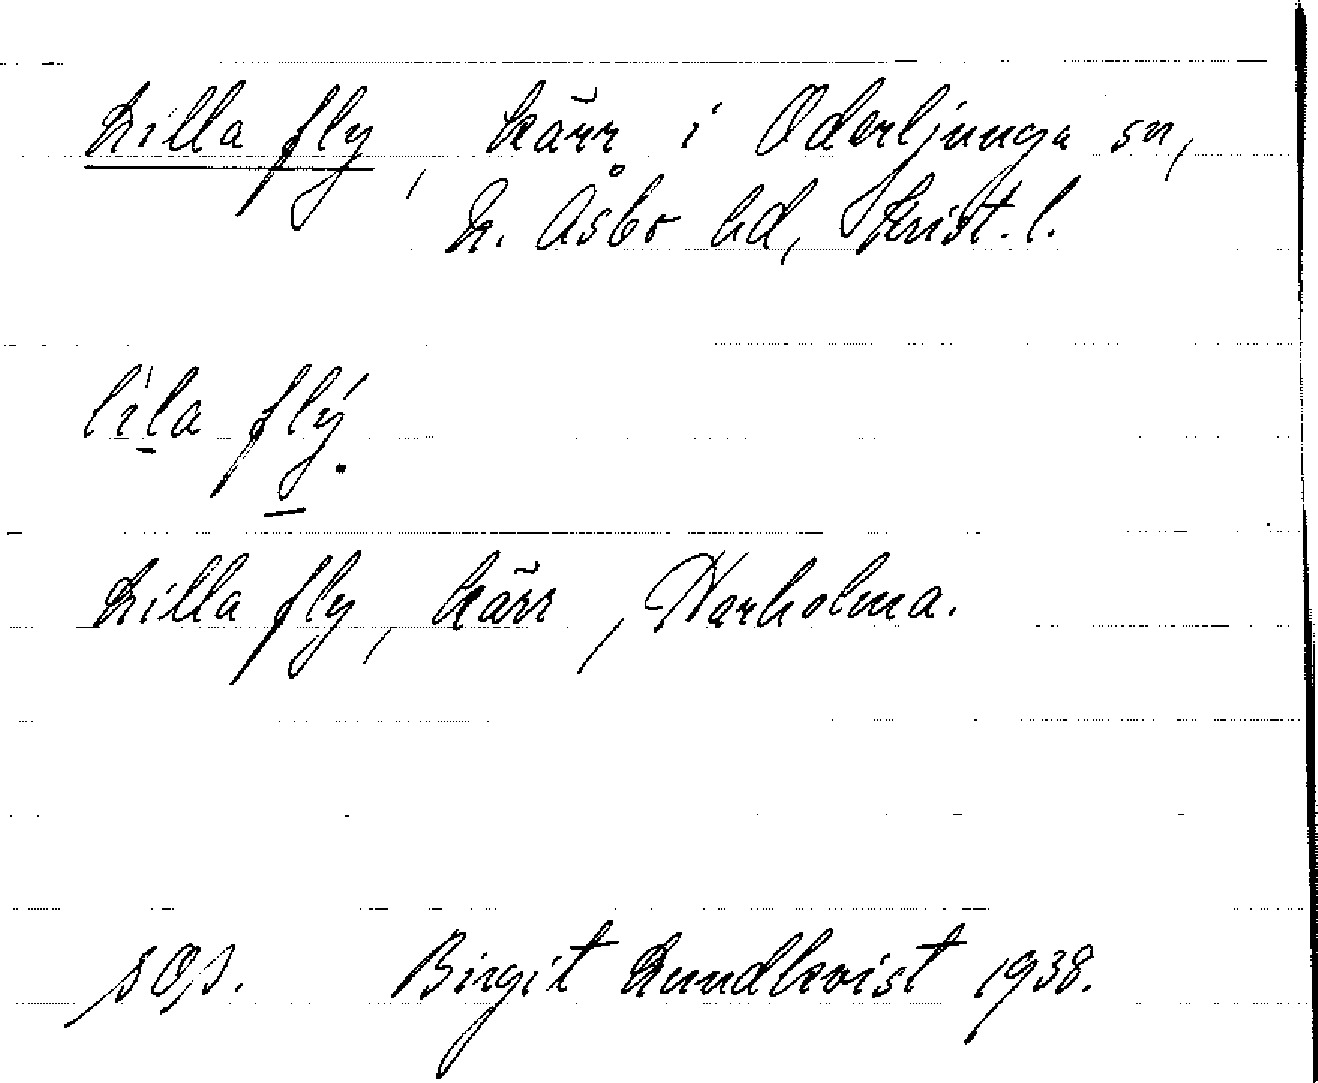 Lilla fly, kärr i Oderljunga sn,
N. Åsbo hd, Krist. l.
lìla flý.
Lilla fly, kärr, Harholma.
Birgit Lundkvist 1938.